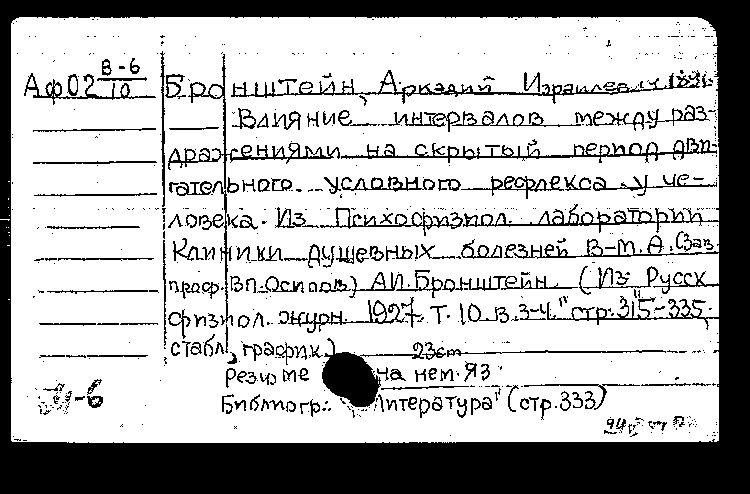 Аф02 В-6/10 Бронштейн, Аркадий Израилевич 1896-
Влияние интервалов между раз-
дражениями на скрытый период дви-
гательного условного рефлекса у че-
ловека. Из Психофизиол. лаборатории
Клиники душевных болезней В-М.А. (Зав.
проф. В.П. Осипов) А.И. Бронштейн. (Из "Русск
физиол. журн. 1927 Т. 10. в. 3-4." стр. 315-335,
с табл., график.) 23см
Резюме на нем. яз.
Библиогр.: "Литература" (стр. 333)
-6